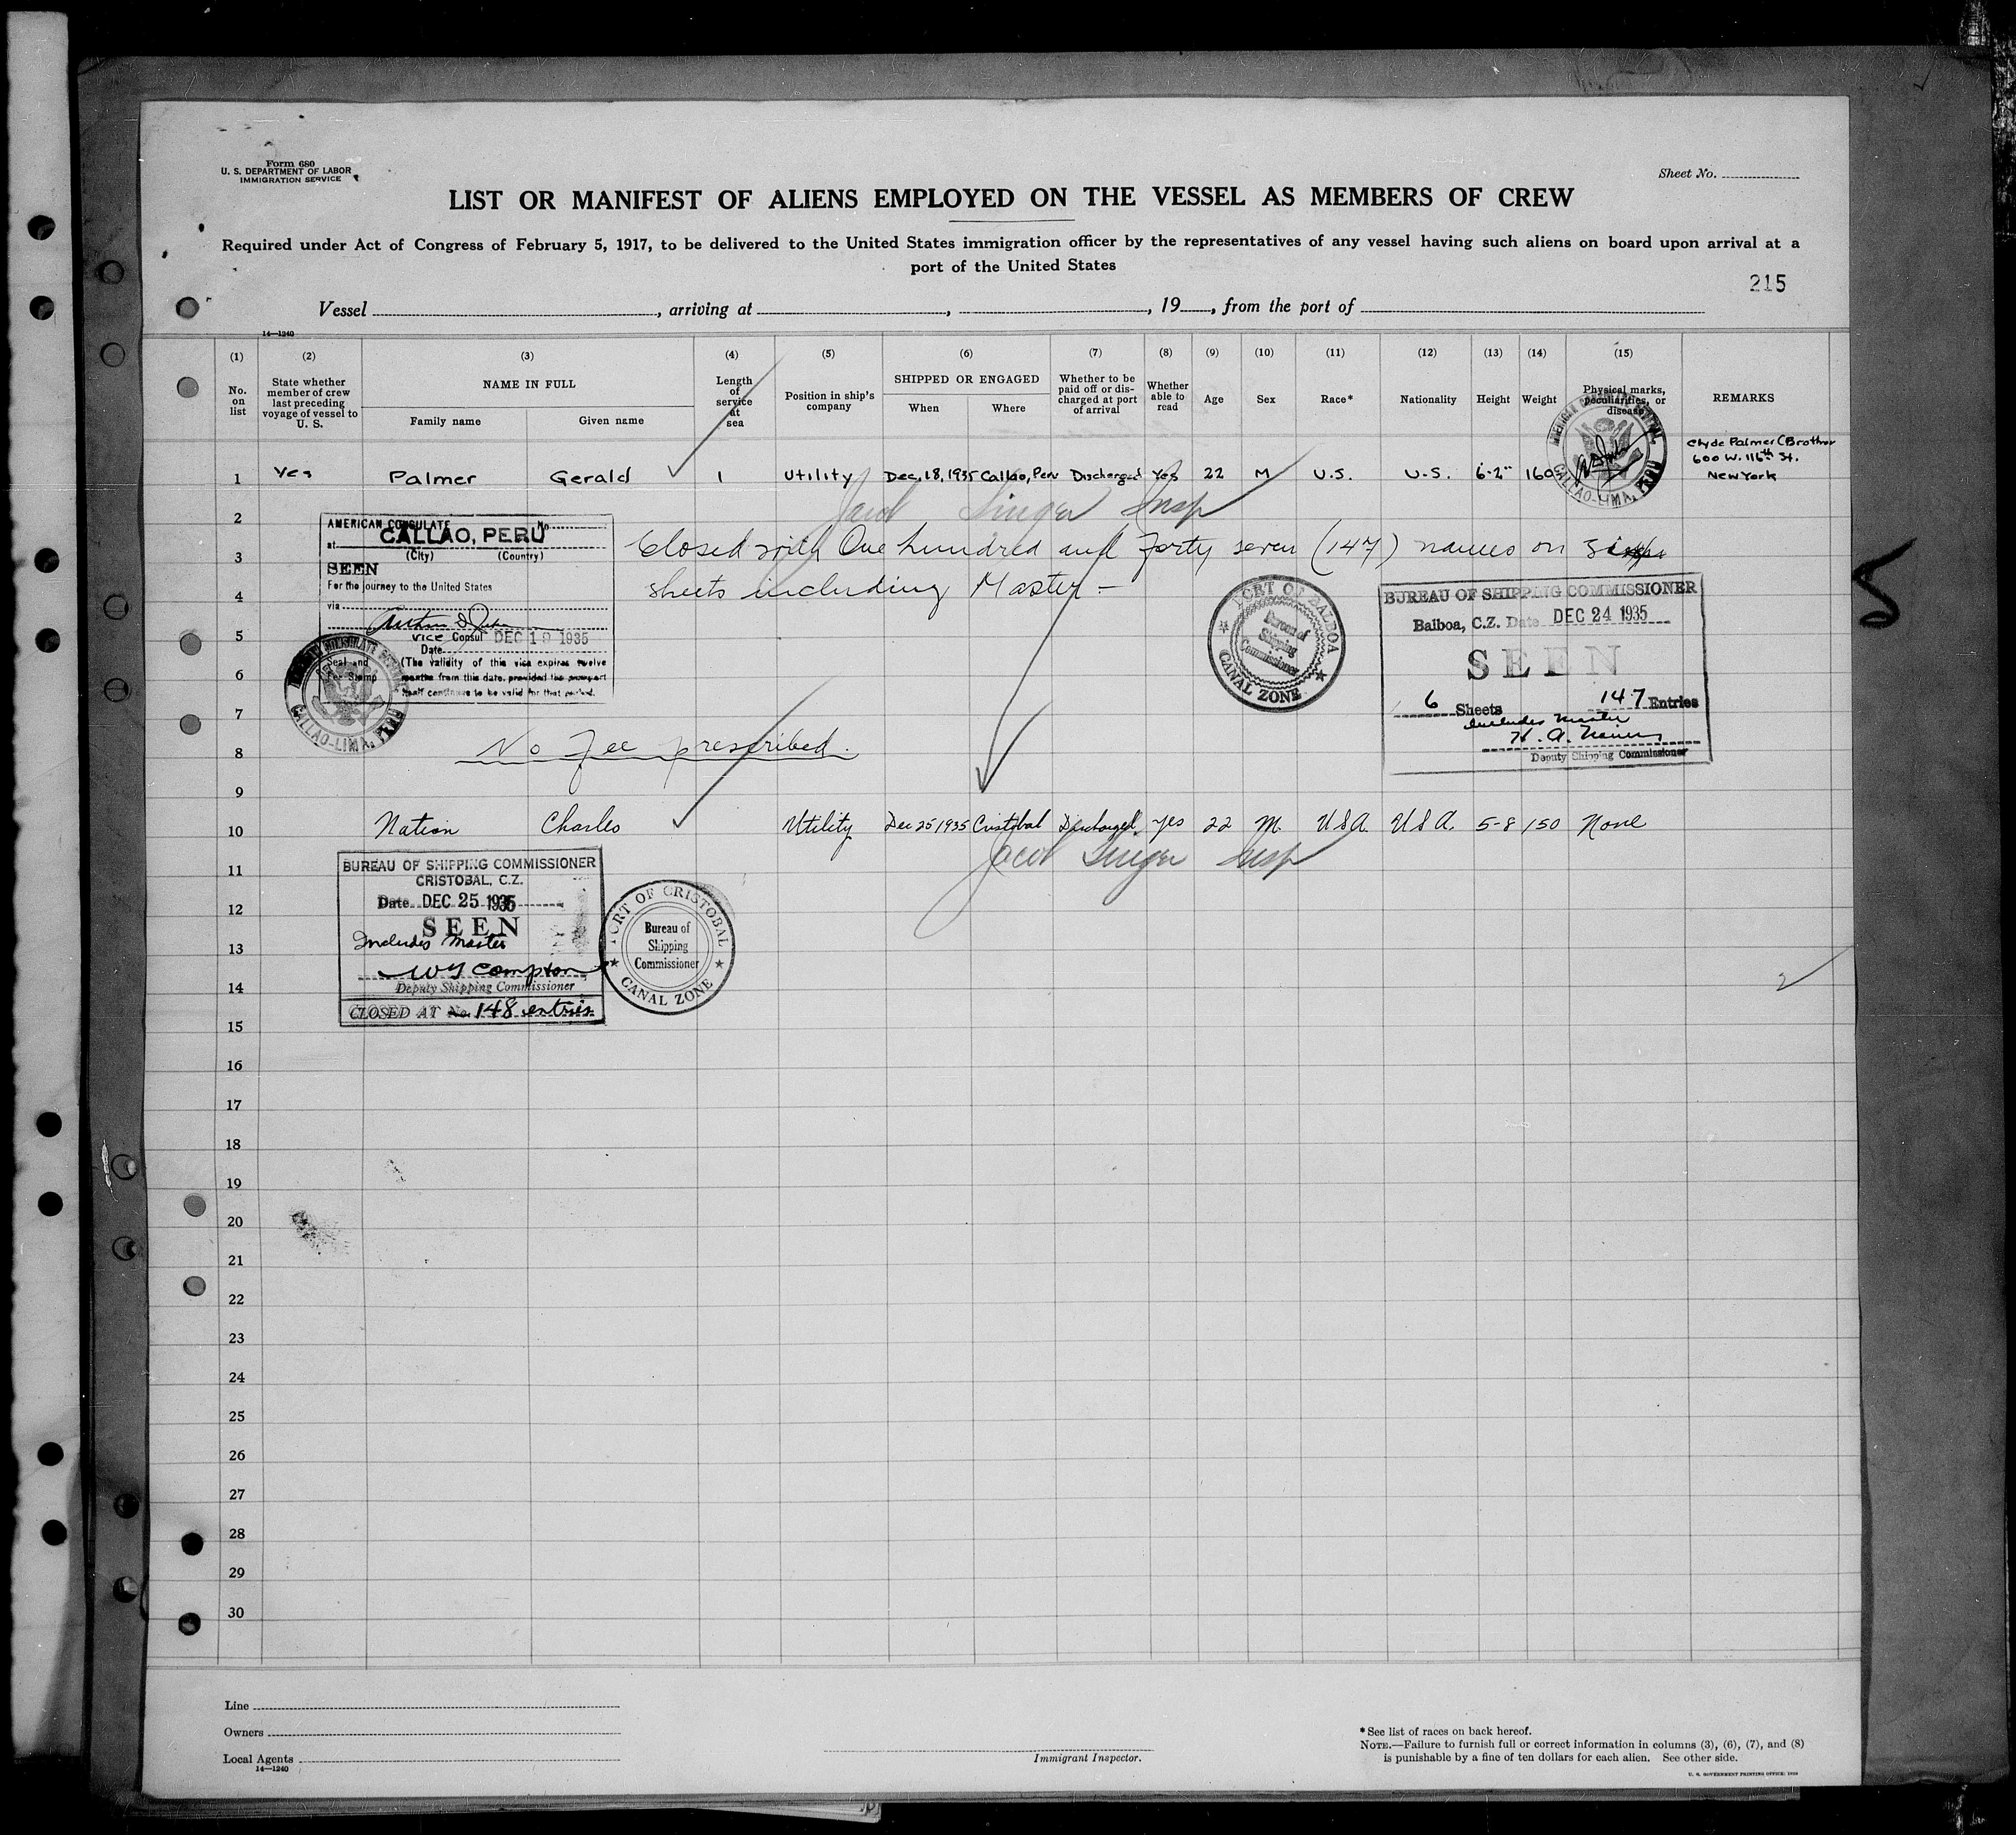 Form 680
U. S. DEPARTMENT OF LABOR
IMMIGRATION SERVICE
Sheet No.
LIST OR MANIFEST OF ALIENS EMPLOYED ON THE VESSEL AS MEMBERS OF CREW
Required under Act of Congress of February 5, 1917, to be delivered to the United States immigration officer by the representatives of any vessel having such aliens on board upon arrival at a
port of the United States
215
Vessel , arriving at , , 19 , from the port of
14—1240
(1) (2) (3) (4) (5) (6) (7) (8) (9) (10) (11) (12) (13) (14) (15)
No. on list
State whether member of crew last preceding voyage of vessel to U. S.
NAME IN FULL
Family name Given name
Length of service at sea
Position in ship's company
SHIPPED OR ENGAGED
When Where
Whether to be paid off or discharged at port of arrival
Whether able to read
Age
Sex
Race*
Nationality
Height
Weight
Physical marks, peculiarities, or disease
REMARKS
Clyde Palmer (Brother
600 W. 116th St.
New York
1 Yes Palmer Gerald 1 Utility Dec. 18, 1935 Callao, Peru Discharged Yes 22 M U.S. U.S. 6-2" 160
AMERICAN CONSULATE GENERAL
CALLAO-LIMA, PERU
Jacob Singer Insp
2
AMERICAN CONSULATE No.
at CALLAO, PERU
(City) (Country)
SEEN
For the journey to the United States
via
Vice Consul DEC 19 1935
Date
Seal and Fee Stamp
(The validity of this visa expires twelve
months from this date, provided the passport
itself continues to be valid for that period.
CALLAO-LIMA, PERU
3 Closed with One hundred and forty seven (147) names on six
4 sheets including Master —
PORT OF BALBOA
Bureau of
Shipping
Commissioner
CANAL ZONE
BUREAU OF SHIPPING COMMISSIONER
Balboa, C.Z. Date DEC 24 1935
SEEN
6 Sheets 147 Entries
Includes Master
Deputy Shipping Commissioner
5
6
7
8 No Fee prescribed.
9
10 Nation Charles Utility Dec 25 1935 Cristobal Discharged yes 22 M. USA. USA. 5-8 150 None
Jacob Singer Insp
11
BUREAU OF SHIPPING COMMISSIONER
CRISTOBAL, C.Z.
Date DEC 25 1935
SEEN
Includes Master
W Compton
Deputy Shipping Commissioner
CLOSED AT No. 148 entries
PORT OF CRISTOBAL
Bureau of
Shipping
Commissioner
CANAL ZONE
12
13
14
2
15
16
17
18
19
20
21
22
23
24
25
26
27
28
29
30
Line
Owners
Local Agents
14—1240
Immigrant Inspector.
*See list of races on back hereof.
NOTE.—Failure to furnish full or correct information in columns (3), (6), (7), and (8)
is punishable by a fine of ten dollars for each alien. See other side.